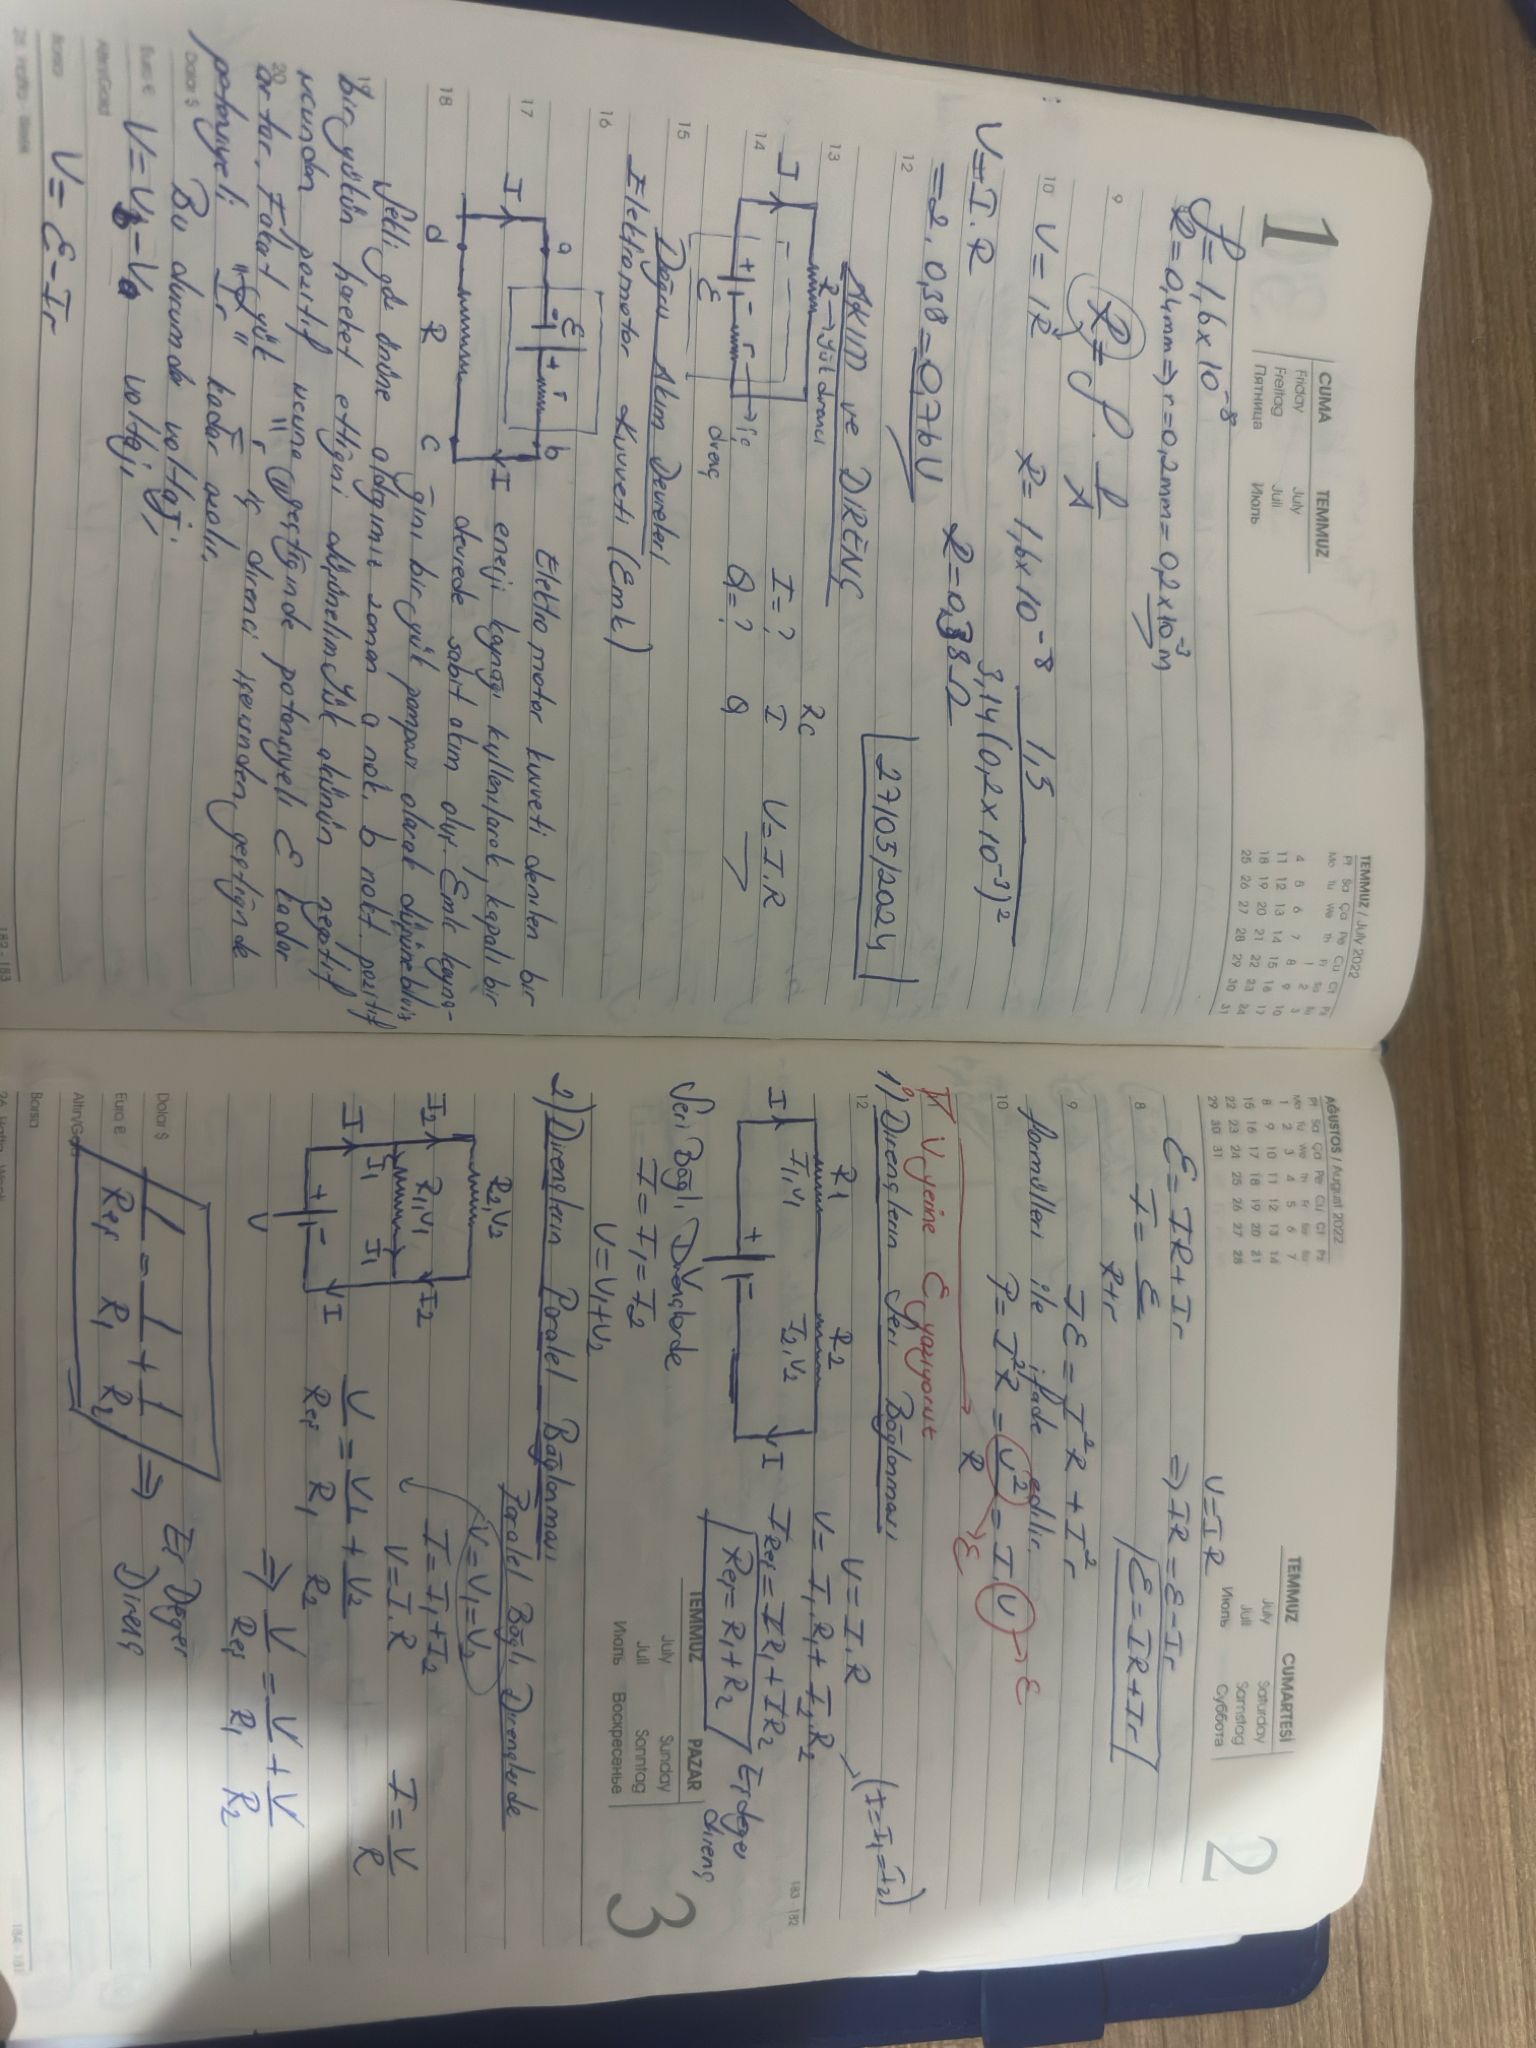 1
CUMA TEMMUZ
Friday July
Freitag Juli
Пятница Июль
TEMMUZ / July 2022
Pt Sa Ça Pe Cu Ct Pz
Mo Tu We Th Fr Sa Su
1 2 3
4 5 6 7 8 9 10
11 12 13 14 15 16 17
18 19 20 21 22 23 24
25 26 27 28 29 30 31
ρ = 1,6x10⁻⁸
R = 0,4mm ⇒ r = 0,2mm = 0,2x10⁻³m
9
R = ρ. l/A
10 V = IR R = 1,6x10⁻⁸ 1,5/3,14(0,2x10⁻³)²
V = I.R R = 0,38Ω
= 2. 0,38 = 0,76V
12 27/05/2024
AKIM ve DİRENÇ
13 R → Yük direnci Rc
I I = ? I V = I.R
14 + - r → iç Q = ? Q
ε direnç
15
Doğru Akım Devreleri
Elektromotor Kuvveti (Emk)
16
a - ε + r b
17 I I
18 d R c
Elektro motor kuvveti denilen bir
enerji kaynağı kullanılarak, kapalı bir
devrede sabit akım olur. Emk kayna-
ğını bir yük pompası olarak düşünebiliriz
19 Şekli göz önüne aldığımız zaman a nok. b nokt. pozitif
bir yükün hareket ettiğini düşünelim Yük akünün negatif
ucundan pozitif ucuna geçtiğinde potansiyeli ε kadar
20 artar. Fakat yük "r" iç direnci içerisinden geçtiğinde
potansiyeli "Ir" kadar azalır.
Dolar $
Bu durumda voltaj;
Euro €
V = Vb - Va voltajı
Altın/Gold
Borsa
V = ε - Ir
182 - 183
AĞUSTOS / August 2022
Pt Sa Ça Pe Cu Ct Pz
Mo Tu We Th Fr Sa Su
1 2 3 4 5 6 7
8 9 10 11 12 13 14
15 16 17 18 19 20 21
22 23 24 25 26 27 28
29 30 31
TEMMUZ CUMARTESİ
July Saturday
Juli Samstag
Июль Суббота
2
V = IR
ε = IR + Ir ⇒ IR = ε - Ir
8 I = ε/R+r ε = IR + Ir
9 Iε = I²R + I²r
formülleri ile ifade edilir.
10 P = I²R = V²/R = I.V → ε
ε
V yerine ε yazıyoruz
1) Dirençlerin Seri Bağlanması
12 (I = I₁ = I₂)
R1 R2 V = I.R
I₁,V₁ I₂,V₂ V = I₁.R₁ + I₂.R₂
183 - 182
I + - I IReş = IR₁ + IR₂
V Reş = R₁ + R₂ Eş değer
direnç
Seri Bağlı Dirençlerde
I = I₁ = I₂
V = V₁ + V₂
TEMMUZ PAZAR
July Sunday
Juli Sonntag
Июль Воскресенье
3
2) Dirençlerin Paralel Bağlanması
Paralel Bağlı Dirençlerde
R₂,V₂ V = V₁ = V₂
I₂ R₁,V₁ I₂ I = I₁ + I₂
I₁ I₁ V = I.R I = V/R
I + - I V/Reş = V₁/R₁ + V₂/R₂
V ⇒ V/Reş = V/R₁ + V/R₂
Dolar $
1/Reş = 1/R₁ + 1/R₂ ⇒ Eş Değer
Direnç
Euro €
Altın/Gold
Borsa
184 - 181